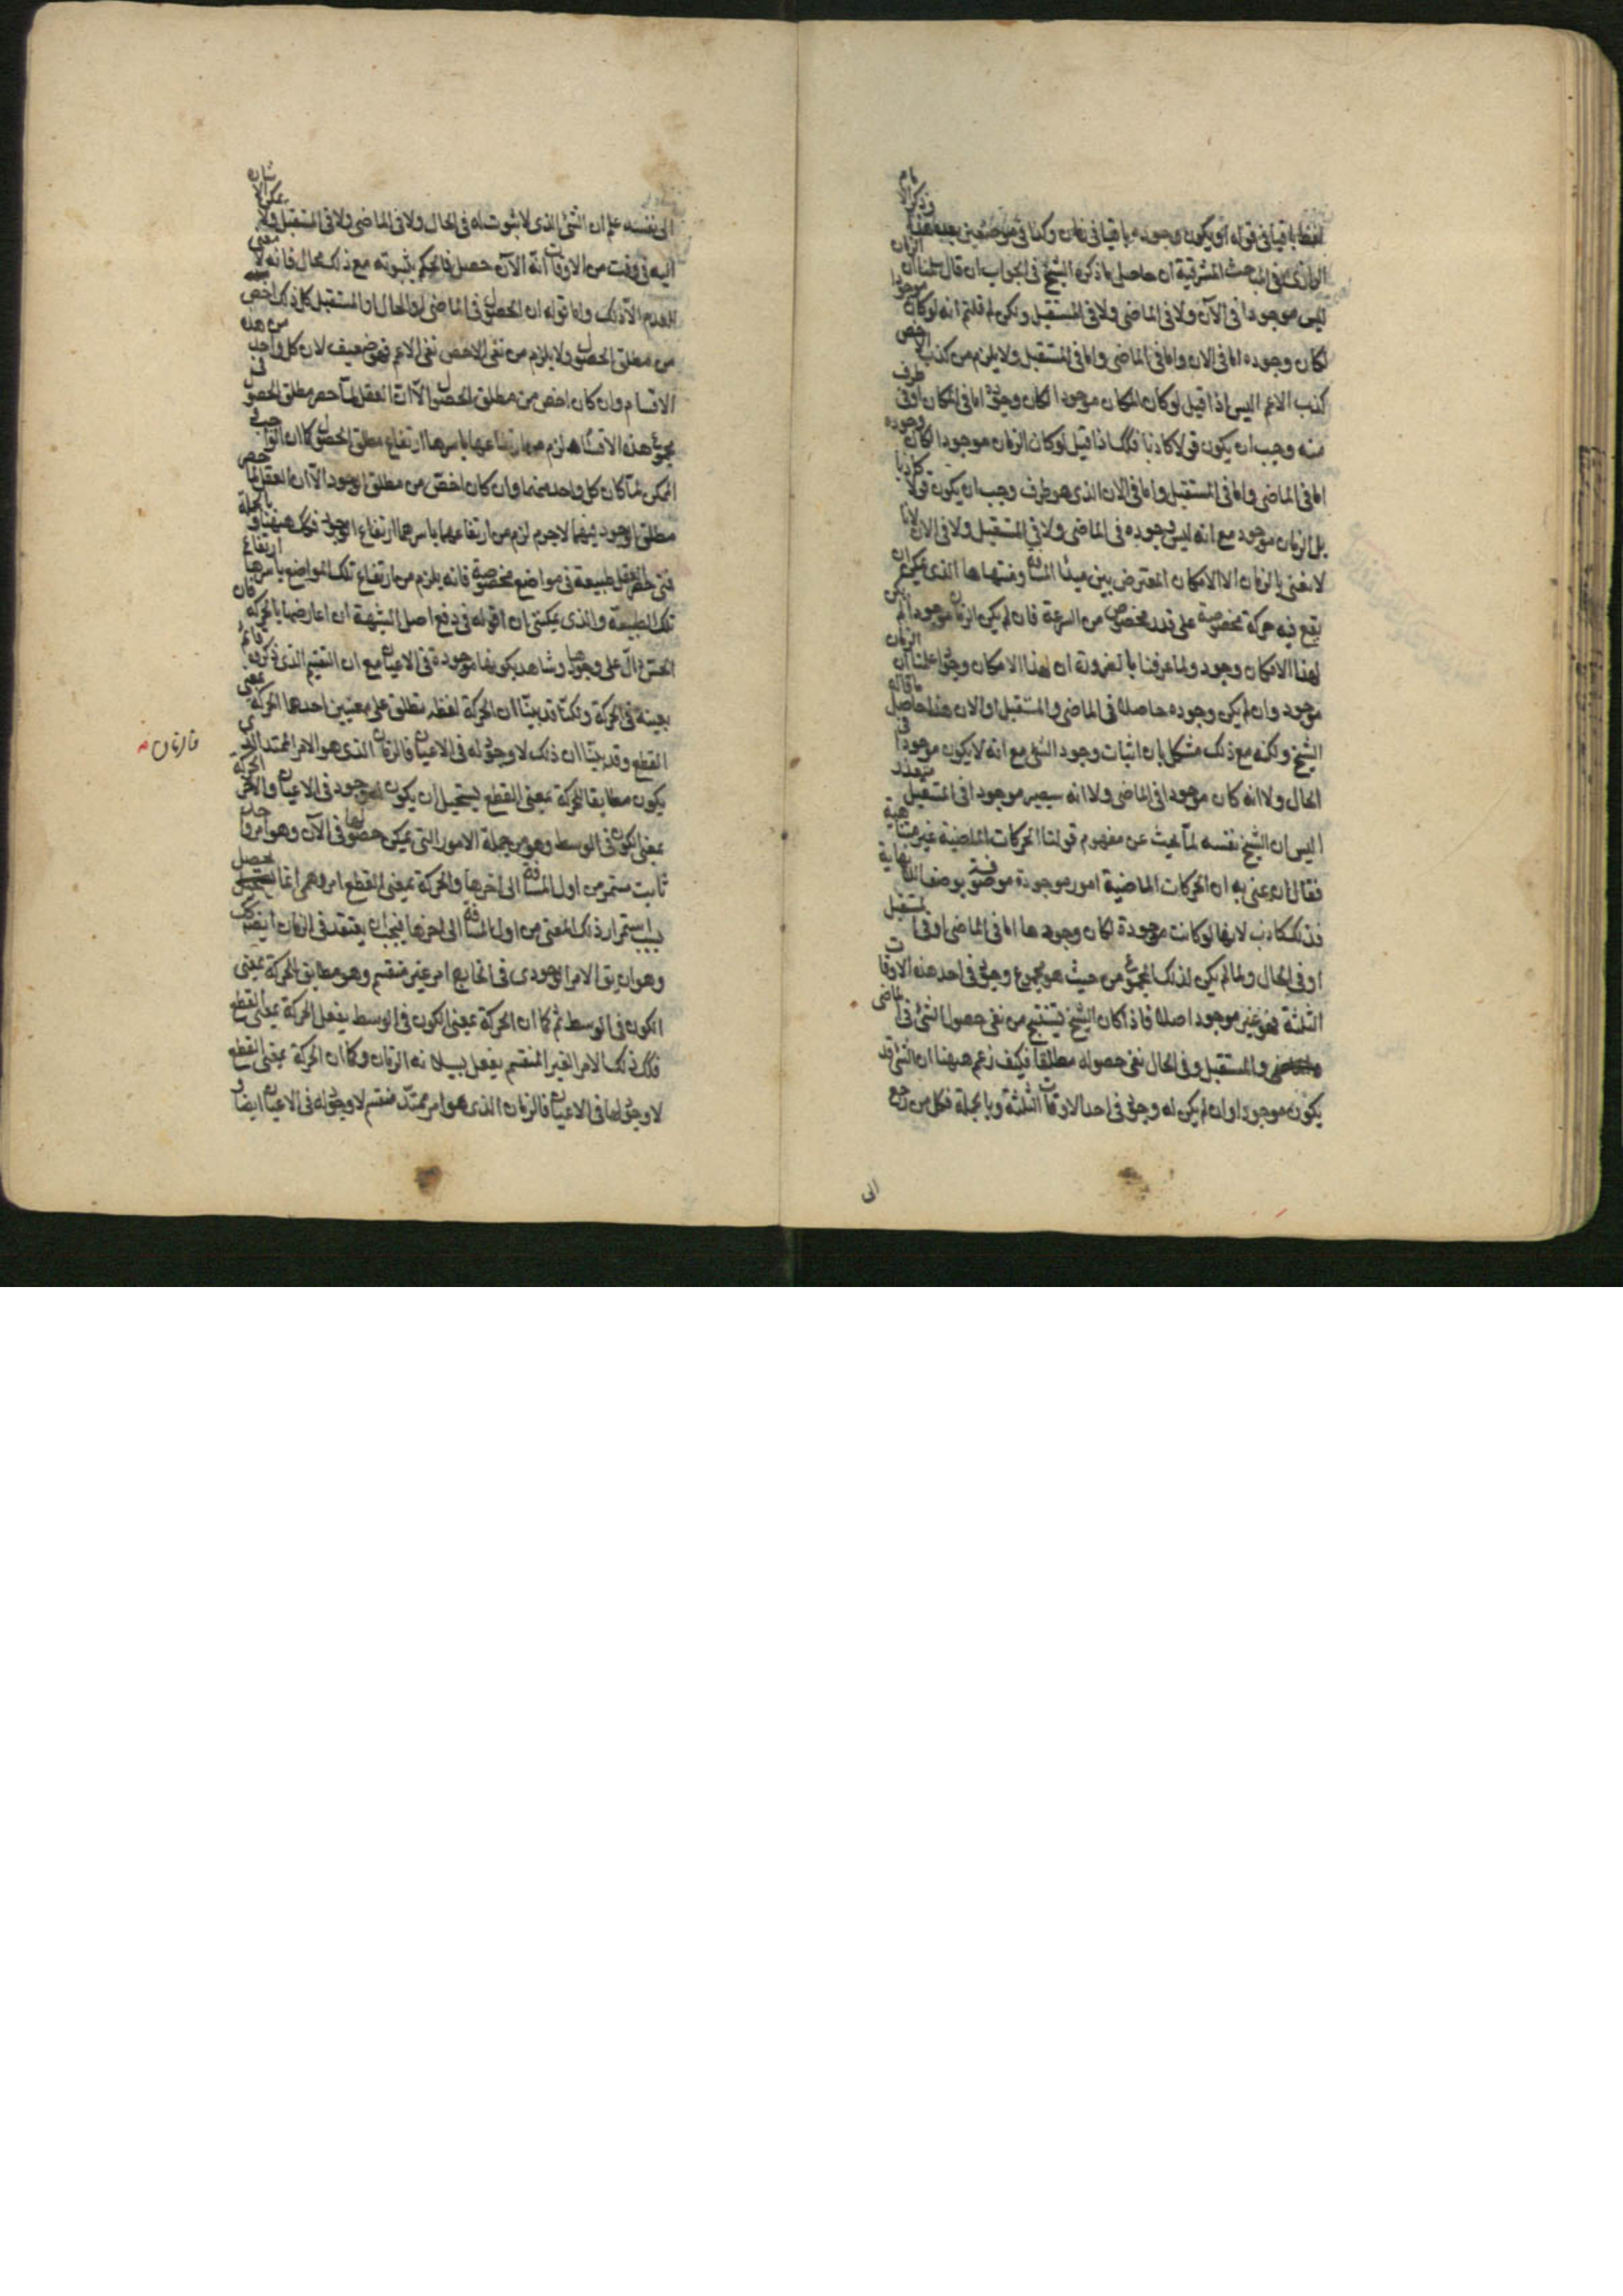 لفظ باقيا فى قوله او يكون وجوده باقيا فى زمان وكذا فى موضعين بعد هذا وذكر الامام
الرازى فى المباحث المشرقية ان حاصل ما ذكره الشيخ فى الجواب ان قال سلمنا ان الزمان
ليس موجودا فى الآن ولا فى الماضى ولا فى المستقبل ولكن لم قلتم انه لو كان موجودا
لكان وجوده اما فى الان واما فى الماضى واما فى المستقبل ولا يلزم من كذب الاخص
كذب الاعم اليس اذا قيل لو كان المكان موجودا لكان وجوده اما فى المكان او فى طرف
منه وجب ان يكون قولا كاذبا فكذا اذا قيل لو كان الزمان موجودا لكان وجوده
اما فى الماضى واما فى المستقبل واما فى الان الذى هو طرف وجب ان يكون قولا كاذبا
بل الزمان موجود مع انه ليس وجوده فى الماضى ولا فى المستقبل ولا فى الان لانا
لا نعنى بالزمان الا الامكان المعترض بين مبدأ المسافة ومنتهاها الذى يمكن ان
يقع فيه حركة مخصوصة على قدر مخصوص من السرعة فان لم يكن الزمان موجودا لم يكن
لهذا الامكان وجود ولما عرفنا بالضرورة ان لهذا الامكان وجودا علمنا ان الزمان
موجود وان لم يكن وجوده حاصلا فى الماضى والمستقبل او الان هذا حاصل ما قاله
الشيخ ولكنه مع ذلك مشكل بان اثبات وجود الشئ مع انه لا يكون موجودا فى
الحال ولا انه كان موجودا فى الماضى ولا انه سيصير موجودا فى المستقبل متعذر
اليس ان الشيخ نفسه لما بحث عن مفهوم قولنا الحركات الماضية غير متناهية
فقال ان عنى به ان الحركات الماضية امور موجودة موصوفة بوصف اللانهاية
فذلك كاذب لانها لو كانت موجودة لكان وجودها اما فى الماضى او فى المستقبل
او فى الحال ولما لم يكن لذلك المجموع من حيث هو مجموع وجود فى احد هذه الاوقات
الثلثة فهو غير موجود اصلا فاذا كان الشيخ يستنتج من نفى حصول الشئ فى الماضى
والمستقبل وفى الحال نفى حصوله مطلقا فكيف زعم ههنا ان الشئ قد
يكون موجودا وان لم يكن له وجود فى احد الاوقات الثلثة وبالجملة فكل من رجع
الى
الى نفسه علم ان الشئ الذى لا ثبوت له فى الحال ولا فى الماضى ولا فى المستقبل ولا يمكن الاشارة
اليه فى وقت من الاوقات انه الآن حصل فالحكم بثبوته مع ذلك محال فانه لا معنى
للعدم الا ذلك واما قوله ان الحصول فى الماضى او الحال او المستقبل كل ذلك اخص
من مطلق الحصول ولا يلزم من نفى الاخص نفى الاعم فهو ضعيف لان كل واحد من هذه
الاقسام وان كان اخص من مطلق الحصول الا ان العقل لما حصر مطلق الحصول فى
مجموع هذه الاقسام لزم من ارتفاعها باسرها ارتفاع مطلق الحصول كما ان الواجب و
الممكن لما كان كل واحد منهما وان كان اخص من مطلق الوجود الا ان العقل لما حصر
مطلق الوجود فيهما لا جرم لزم من ارتفاعهما باسرهما ارتفاع الوجود فكذا ههنا وبالجملة
فمتى حصر العقل طبيعة فى مواضع مخصوصة فانه يلزم من ارتفاع تلك المواضع باسرها ارتفاع
تلك الطبيعة والذى يمكننى ان اقوله فى دفع اصل الشبهة ان اعارضها بالحركة فان
الحس دال على وجودها وشاهد بكونها موجودة فى الاعيان مع ان التقسيم الذى ذكروه قائم
بعينه فى الحركة ولكنا قد بينا ان الحركة لفظة تطلق على معنيين احدها الحركة بمعنى
القطع وقد بينا ان ذلك لا وجود له فى الاعيان فالزمان الذى هو الامر الممتد الذى
فالزمان
يكون مطابقا للحركة بمعنى القطع يستحيل ان يكون له وجود فى الاعيان والاخر الحركة
بمعنى الكون فى الوسط وهو من جملة الامور التى يمكن حصولها فى الآن وهو امر واحد
ثابت مستمر من اول المسافة الى اخرها والحركة بمعنى القطع امر وهمى انما يحصل
بسبب استمرار ذلك المعنى من اول المسافة الى اخرها فيجب ان يعتقد فى الزمان ايضا كذلك
وهو ان يق الامر الوجودى فى الخارج امر غير منقسم وهو مطابق للحركة بمعنى
الكون فى الوسط ثم كما ان الحركة بمعنى الكون فى الوسط يفعل الحركة بمعنى القطع
فكذلك الامر الغير المنقسم يفعل بسيلانه الزمان وكما ان الحركة بمعنى القطع
لا وجود لها فى الاعيان فالزمان الذى هو امر ممتد منقسم لا وجود له فى الاعيان ايضا و